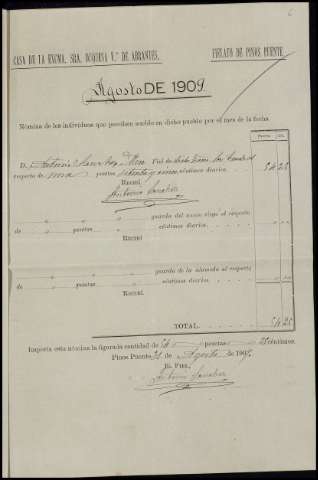 CASA DE LA EXCMA. SRA. DUQUESA V.ª DE ABRANTES. FIELATO DE PINOS PUENTE.
Agosto DE 1909.
Nómina de los individuos que perciben sueldo en dicho pueblo por el mes de la fecha.
Pesetas Cts.
D. Antonio Sanchez Fiel de
respecto de una pesetas setenta y cinco céntimos diarios 54 25
Recibí
Antonio Sanchez
guarda del soto viejo al respecto
de pesetas céntimos diarios
Recibí
guarda de la alameda al respecto
de pesetas céntimos diarios
Recibí
TOTAL 54 25
Importa esta nómina la figurada cantidad de 54 pesetas 25 céntimos.
Pinos Puente 31 de Agosto de 1909.
El Fiel,
Antonio Sanchez